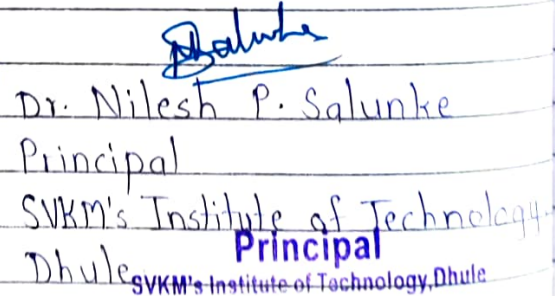 Salunke
Dr. Nilesh P. Salunke
Principal
SVKM's Institute of Technology.
Dhule
Principal
SVKM's Institute of Technology, Dhule